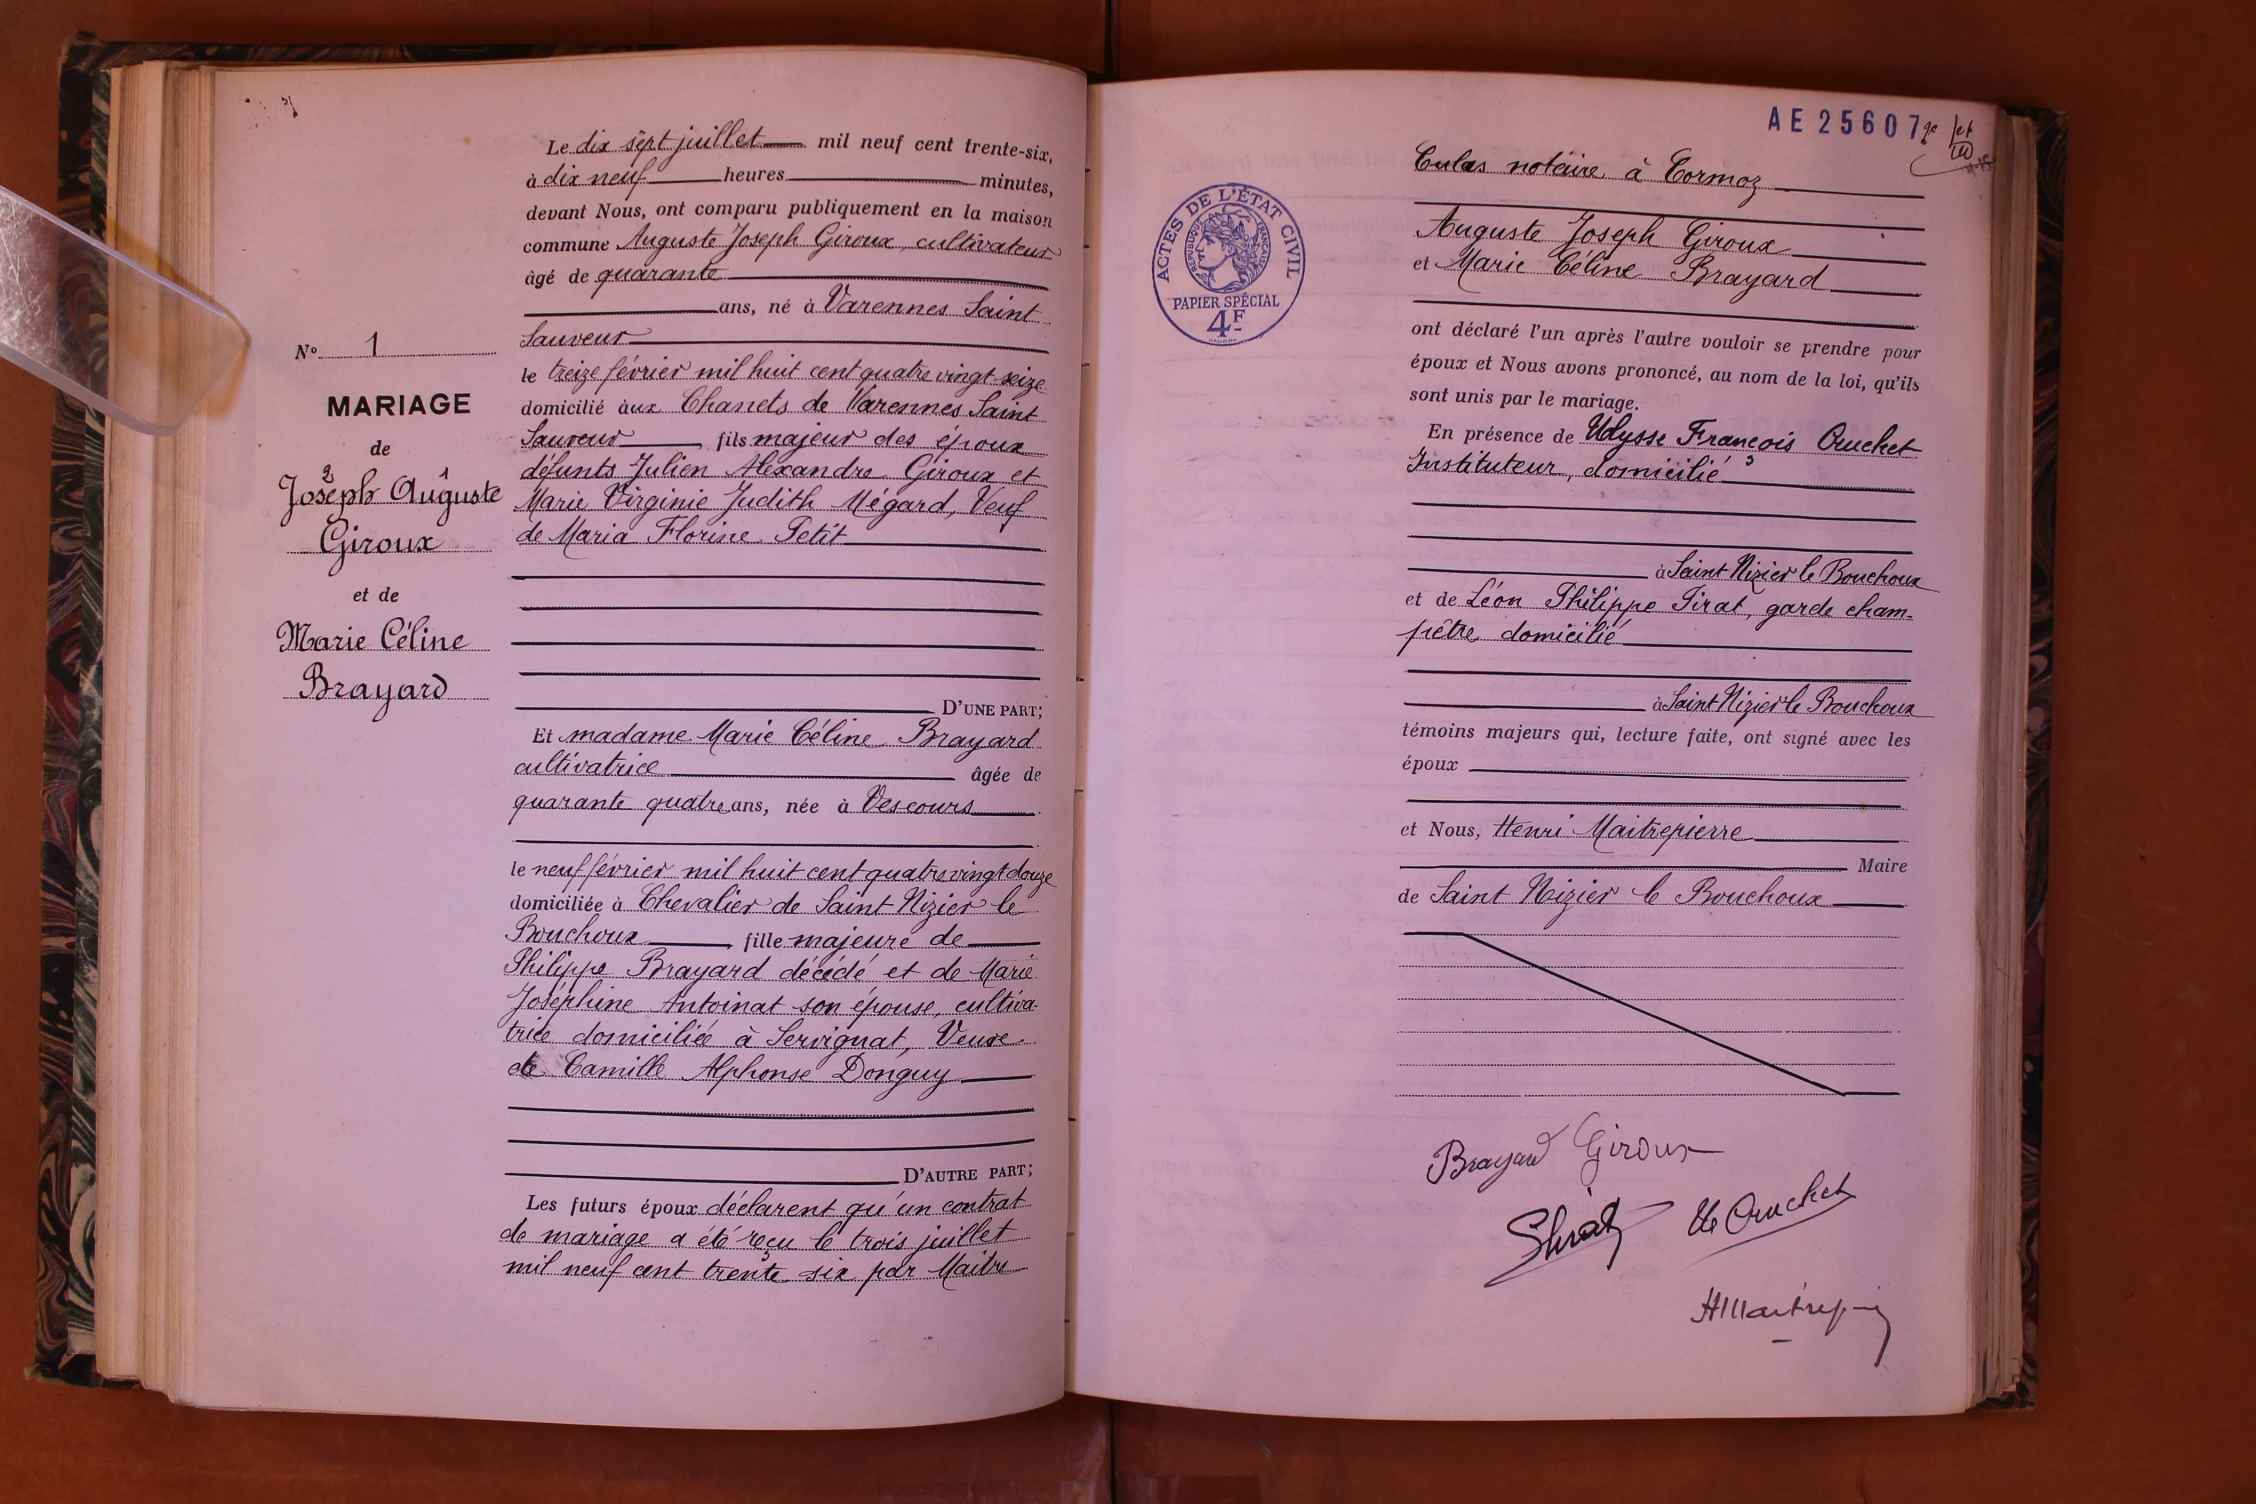 N° 1
MARIAGE
de
Joseph Auguste
Giroux
et de
Marie Céline
Brayard
Le dix sept juillet mil neuf cent trente-six,
à dix neuf heures minutes,
devant Nous, ont comparu publiquement en la maison
commune Auguste Joseph Giroux, cultivateur
âgé de quarante
ans, né à Varennes Saint
Sauveur
le treize février mil huit cent quatre vingt seize
domicilié aux Chanets de Varennes Saint
Sauveur fils majeur des époux
défunts Julien Alexandre Giroux et
Marie Virginie Judith Mégard, Veuf
de Maria Florine Petit
D'UNE PART;
Et madame Marie Céline Brayard
cultivatrice âgée de
quarante quatre ans, née à Vescours
le neuf février mil huit cent quatre vingt douze
domiciliée à Chevalier de Saint Nizier le
Bouchoux fille majeure de
Philippe Brayard décédé et de Marie
Joséphine Antoinat son épouse, cultiva-
trice domiciliée à Servignat, Veuve
de Camille Alphonse Donguy
D'AUTRE PART;
Les futurs époux déclarent qu'un contrat
de mariage a été reçu le trois juillet
mil neuf cent trente six par Maître
AE25607
ACTES DE L'ÉTAT CIVIL
RÉPUBLIQUE FRANÇAISE
PAPIER SPÉCIAL
4F
Culas notaire à Cormoz
Auguste Joseph Giroux
et Marie Céline Brayard
ont déclaré l'un après l'autre vouloir se prendre pour
époux et Nous avons prononcé, au nom de la loi, qu'ils
sont unis par le mariage.
En présence de Ulysse François Cruchet
Instituteur, domicilié
à Saint Nizier le Bouchoux
et de Léon Philippe Tirat, garde cham-
pêtre domicilié
à Saint Nizier le Bouchoux
témoins majeurs qui, lecture faite, ont signé avec les
époux
et Nous, Henri Maitrepierre
Maire
de Saint Nizier le Bouchoux
Brayard Giroux
Cruchet
HMaitrepierre